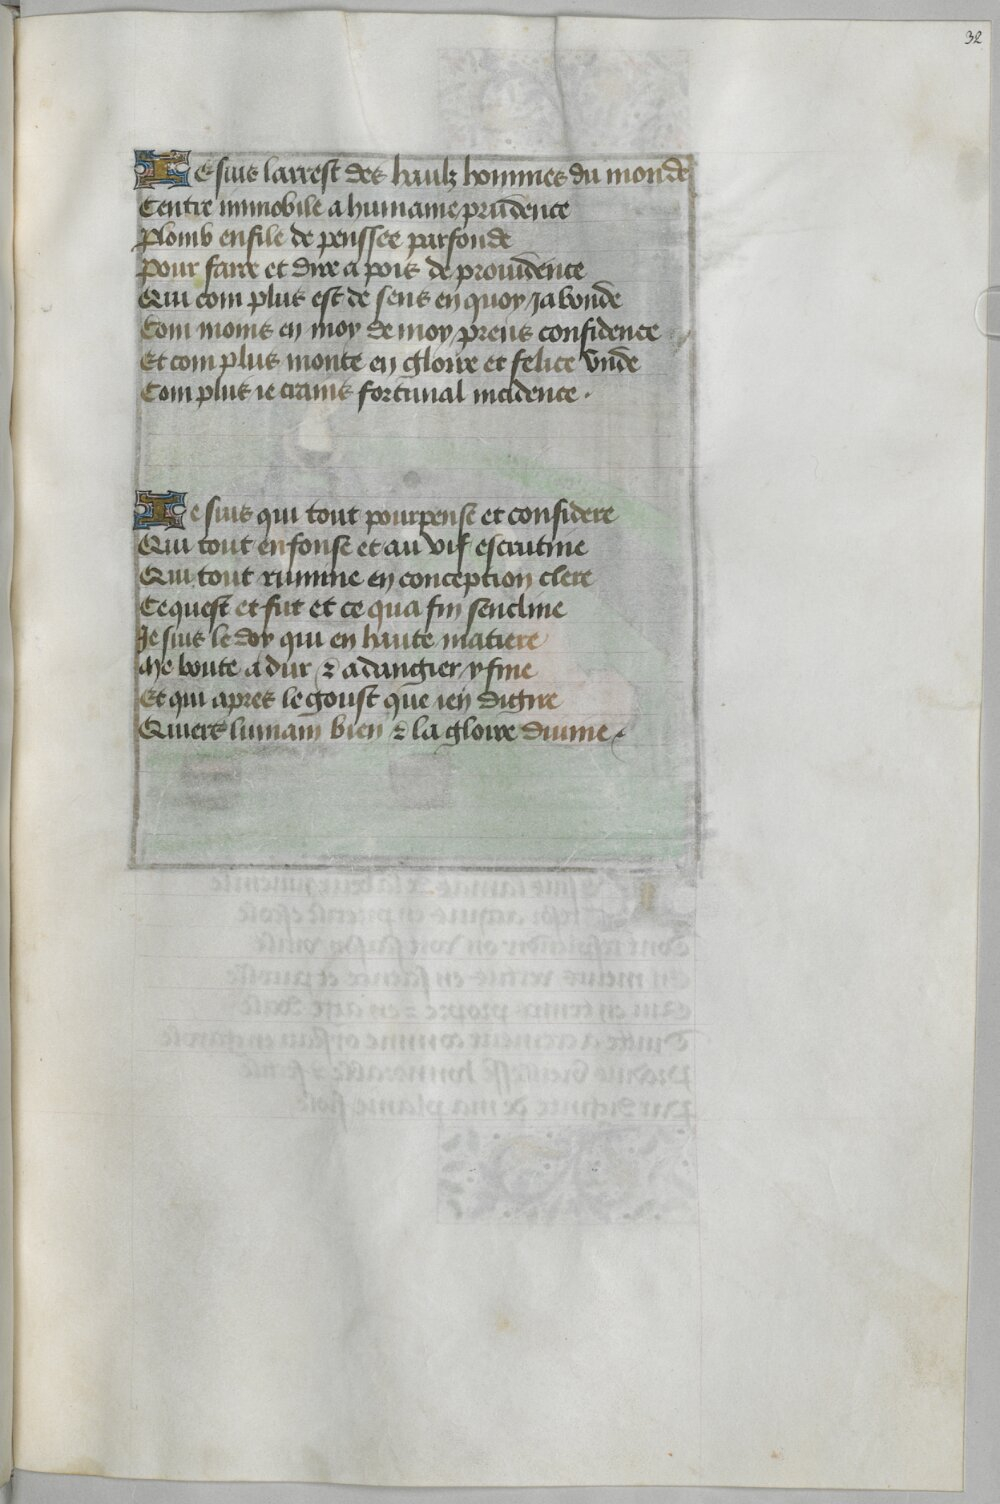 32
Ie suis larrest des haulz hommes du monde
Centre immobile a humaine prudence
Plomb en file de penssee parfonde
Pour faire et dire a pois de prouidence
Qui com plus est de sens en quoy jabonde
Com moins en moy de moy prens confidence
Et com plus monte en gloire et felice vnde
Com plus ie crains fortunal incidence .
Ie suis qui tout pourpense et considere
Qui tout enfonse et au vif escrutine
Qui tout rumine en conception clere
Ce quest et fut et ce qua fin sencline
Je suis le doy qui en haute matiere
Me boute a dur & a dangier ysine
Et qui apres le goust que ien digire
Quiers lumain bien & la gloire diuine